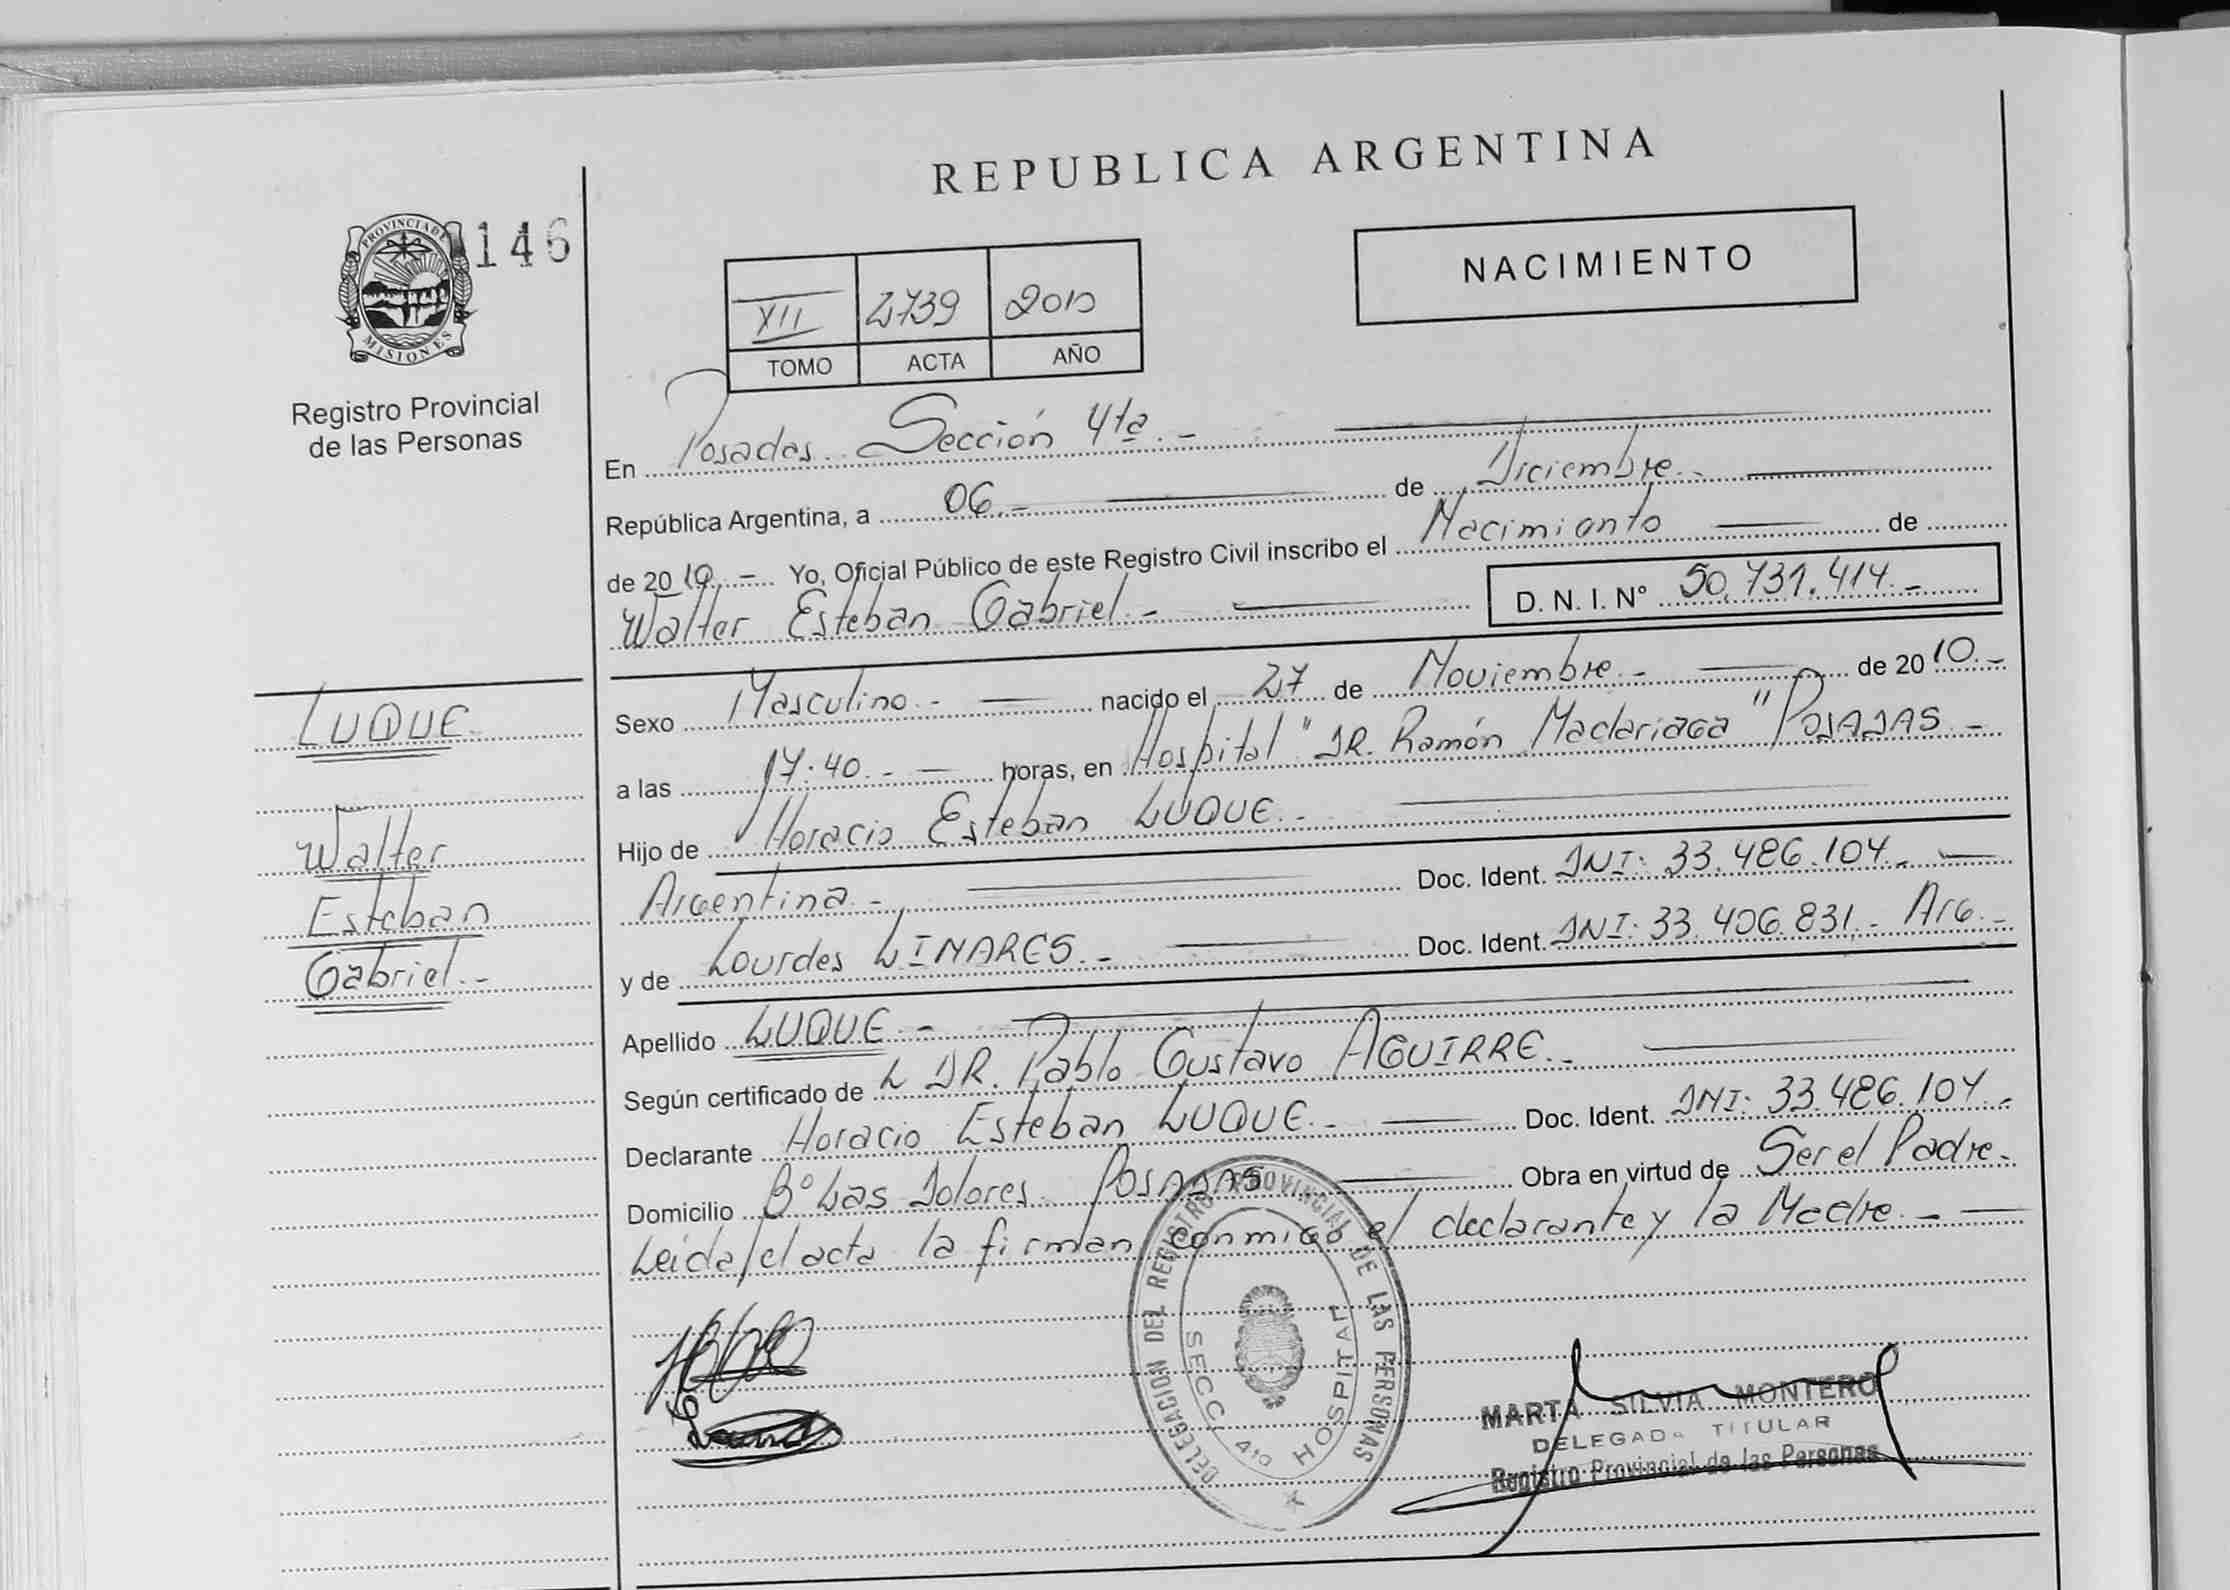 REPUBLICA ARGENTINA
PROVINCIA DE
MISIONES
146
Registro Provincial
de las Personas
NACIMIENTO
XII 2739 2010
TOMO ACTA AÑO
En Posadas Sección 4ta.-
República Argentina, a 06.- de Diciembre.-
de 2010.- Yo, Oficial Público de este Registro Civil inscribo el Nacimiento de
Walter Esteban Gabriel.- D. N. I. N° 50.731.414.-
LUQUE
Walter
Esteban
Gabriel.-
Sexo Masculino.- nacido el 27 de Noviembre.- de 2010.-
a las 17:40.- horas, en Hospital "DR. Ramón Madariaga" POSADAS.-
Hijo de Horacio Esteban LUQUE.-
Argentina.- Doc. Ident. DNI: 33.486.104.-
y de Lourdes LINARES.- Doc. Ident. DNI: 33.406.831.- Arg.-
Apellido LUQUE.-
Según certificado de L DR. Pablo Gustavo AGUIRRE.-
Declarante Horacio Esteban LUQUE.- Doc. Ident. DNI: 33.486.104.-
Domicilio B° Las Dolores. POSADAS Obra en virtud de Ser el Padre.-
Leida el acta la firman conmigo el declarante y la Madre.-
DELEGACION DEL REGISTRO PROVINCIAL DE LAS PERSONAS
SECC. 4ta HOSPITAL
MARTA SILVIA MONTERO
DELEGADA TITULAR
Registro Provincial de las Personas